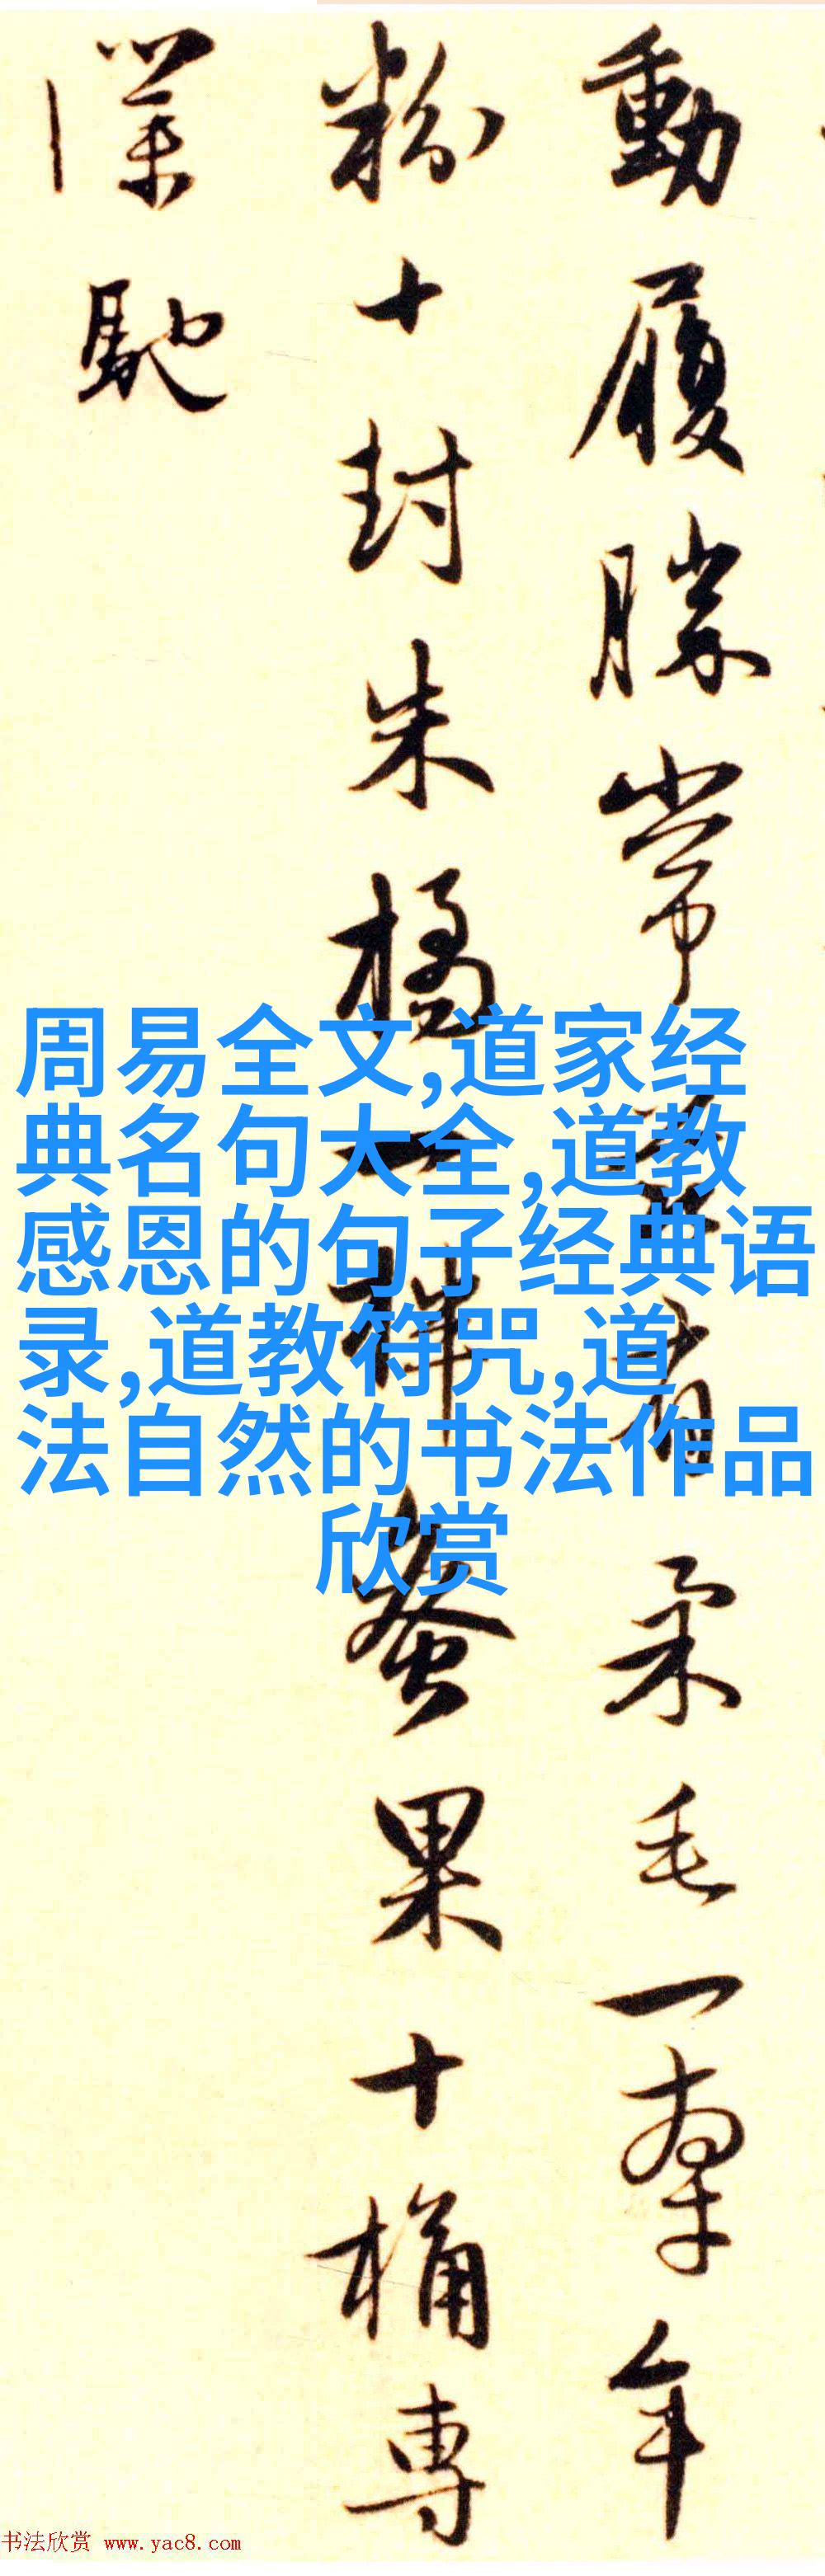 動履勝常
者柔毛一群年
粉十封朱橘一
蚕果十桶専
僕馳
周易全文,道家经
典名句大全,道教
感恩的句子经典语
录,道教符咒,道
法自然的书法作品
欣赏
书法欣赏 www.yac8.com